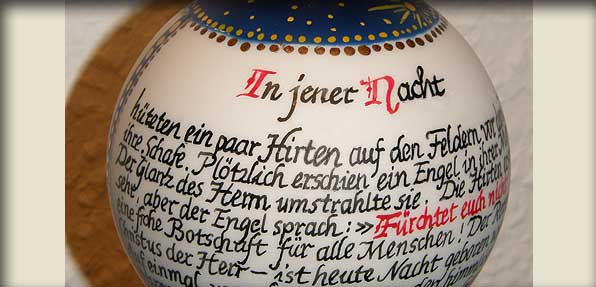 In jener Nacht
hüteten ein paar Hirten auf den Feldern vor
ihre Schafe. Plötzlich erschien ein Engel in ihrer
Der Glanz des Herrn umstrahlte sie. Die Hirten
sehr, aber der Engel sprach: »Fürchtet euch
eine frohe Botschaft für alle Menschen! Der
der Herr – ist heute Nacht geboren
auf einmal